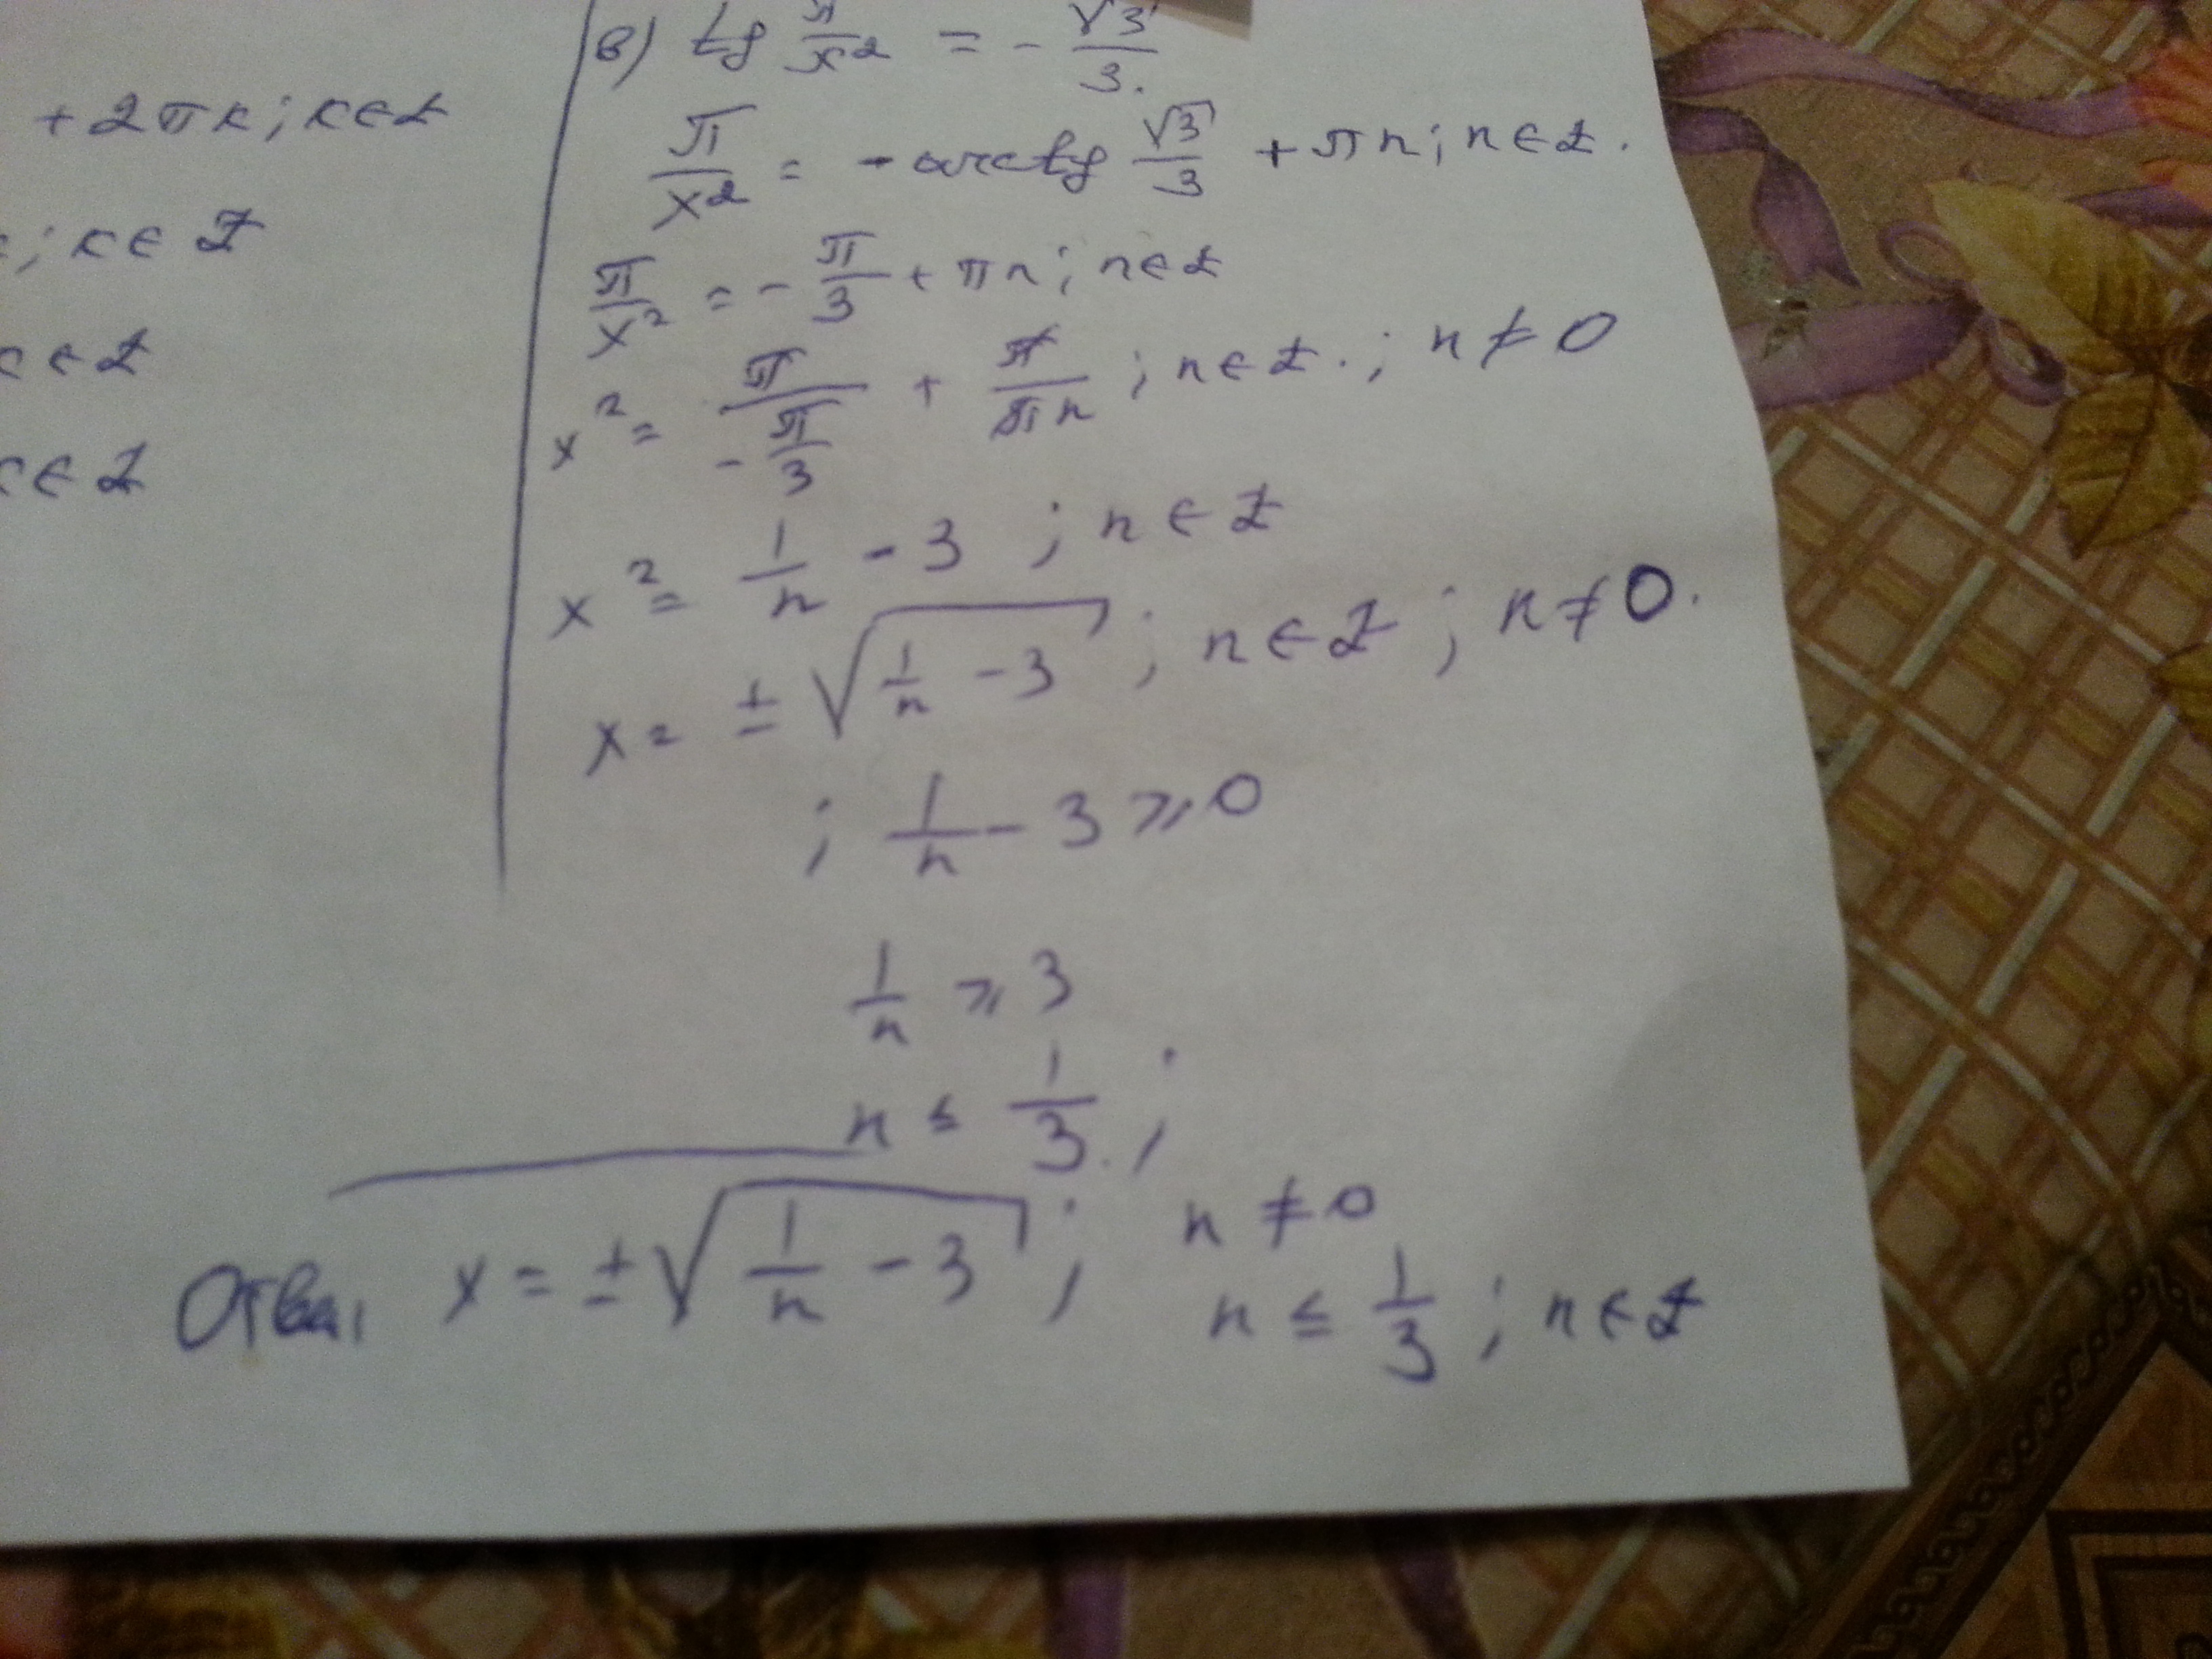 + 2πк; к∈Z
; к∈Z
к∈Z
к∈Z
в) tg π/x² = - √3/3.
π/x² = - arctg √3/3 + πn; n∈Z.
π/x² = - π/3 + πn; n∈Z
x² = π/(-π/3) + π/(πn); n∈Z.; n≠0
x² = 1/n - 3; n∈Z
x = ± √(1/n - 3); n∈Z; n≠0.
; 1/n - 3 ⩾ 0
1/n ⩾ 3
n ≤ 1/3.;
x = ± √(1/n - 3); n≠0
n ≤ 1/3; n∈Z